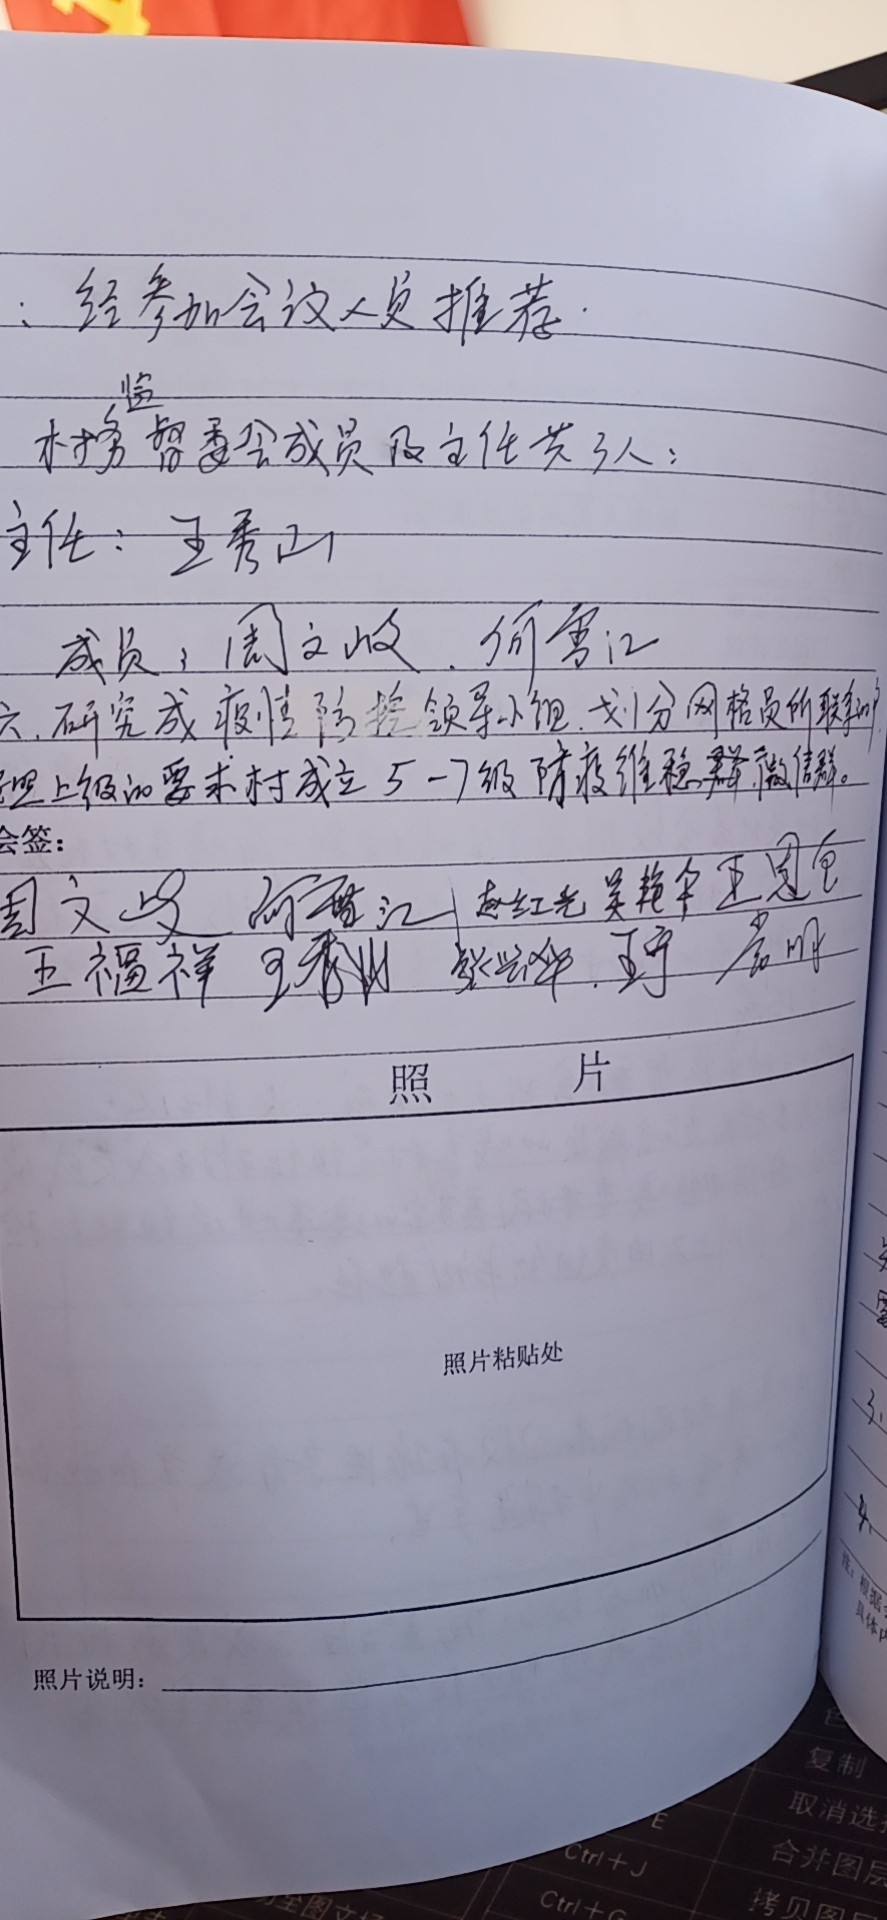 ：经参加会议人员推荐.
监
村务督委会成员及主任共3人：
主任：王秀山
成员：周文岐.何雪江
六.研究成疫情防控领导小组.划分网格员所联系的户
照上级的要求村成立5-7级防疫维稳群.微信群。
会签：
周文岐 何雪江 赵红光 吴艳伞 王恩
王福祥 王秀山 王宁 常明
照 片
照片粘贴处
照片说明：
3.
4.
注：根据
具体内
复制
取消选择
E
Ctrl＋J
合并图层
Ctrl＋G
拷贝图层